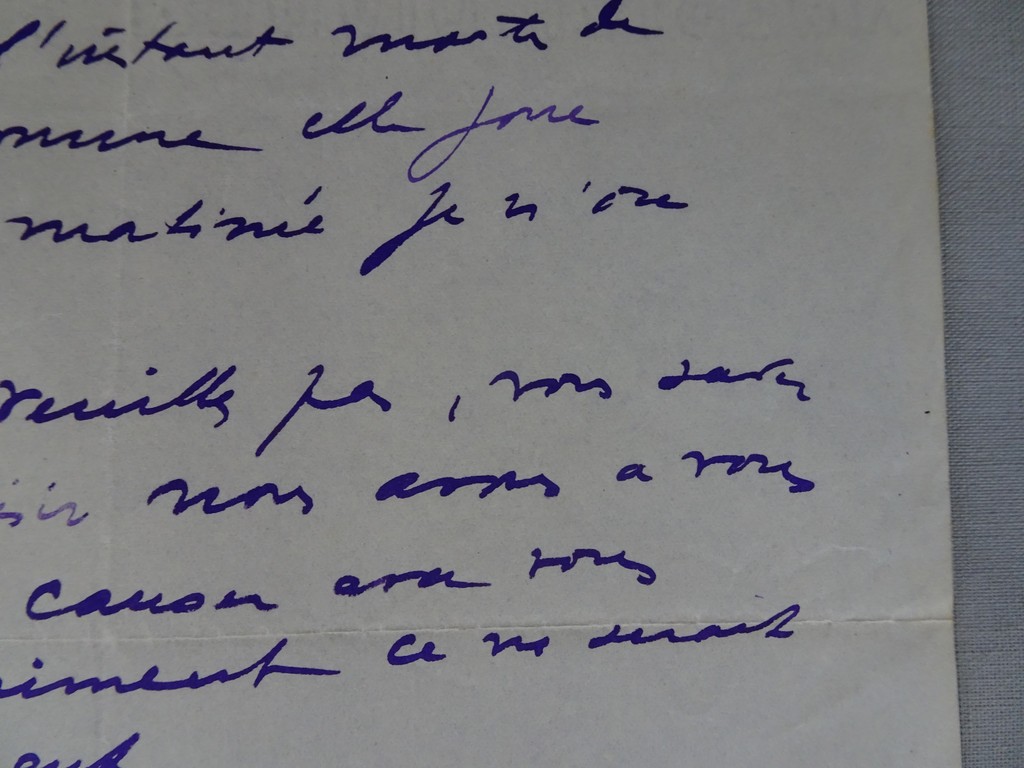 l'instant morte de
elle joue
matinée je n'ose
veuillez pas, vous savez
nous avons a vous
causer avec vous
ce ne serait